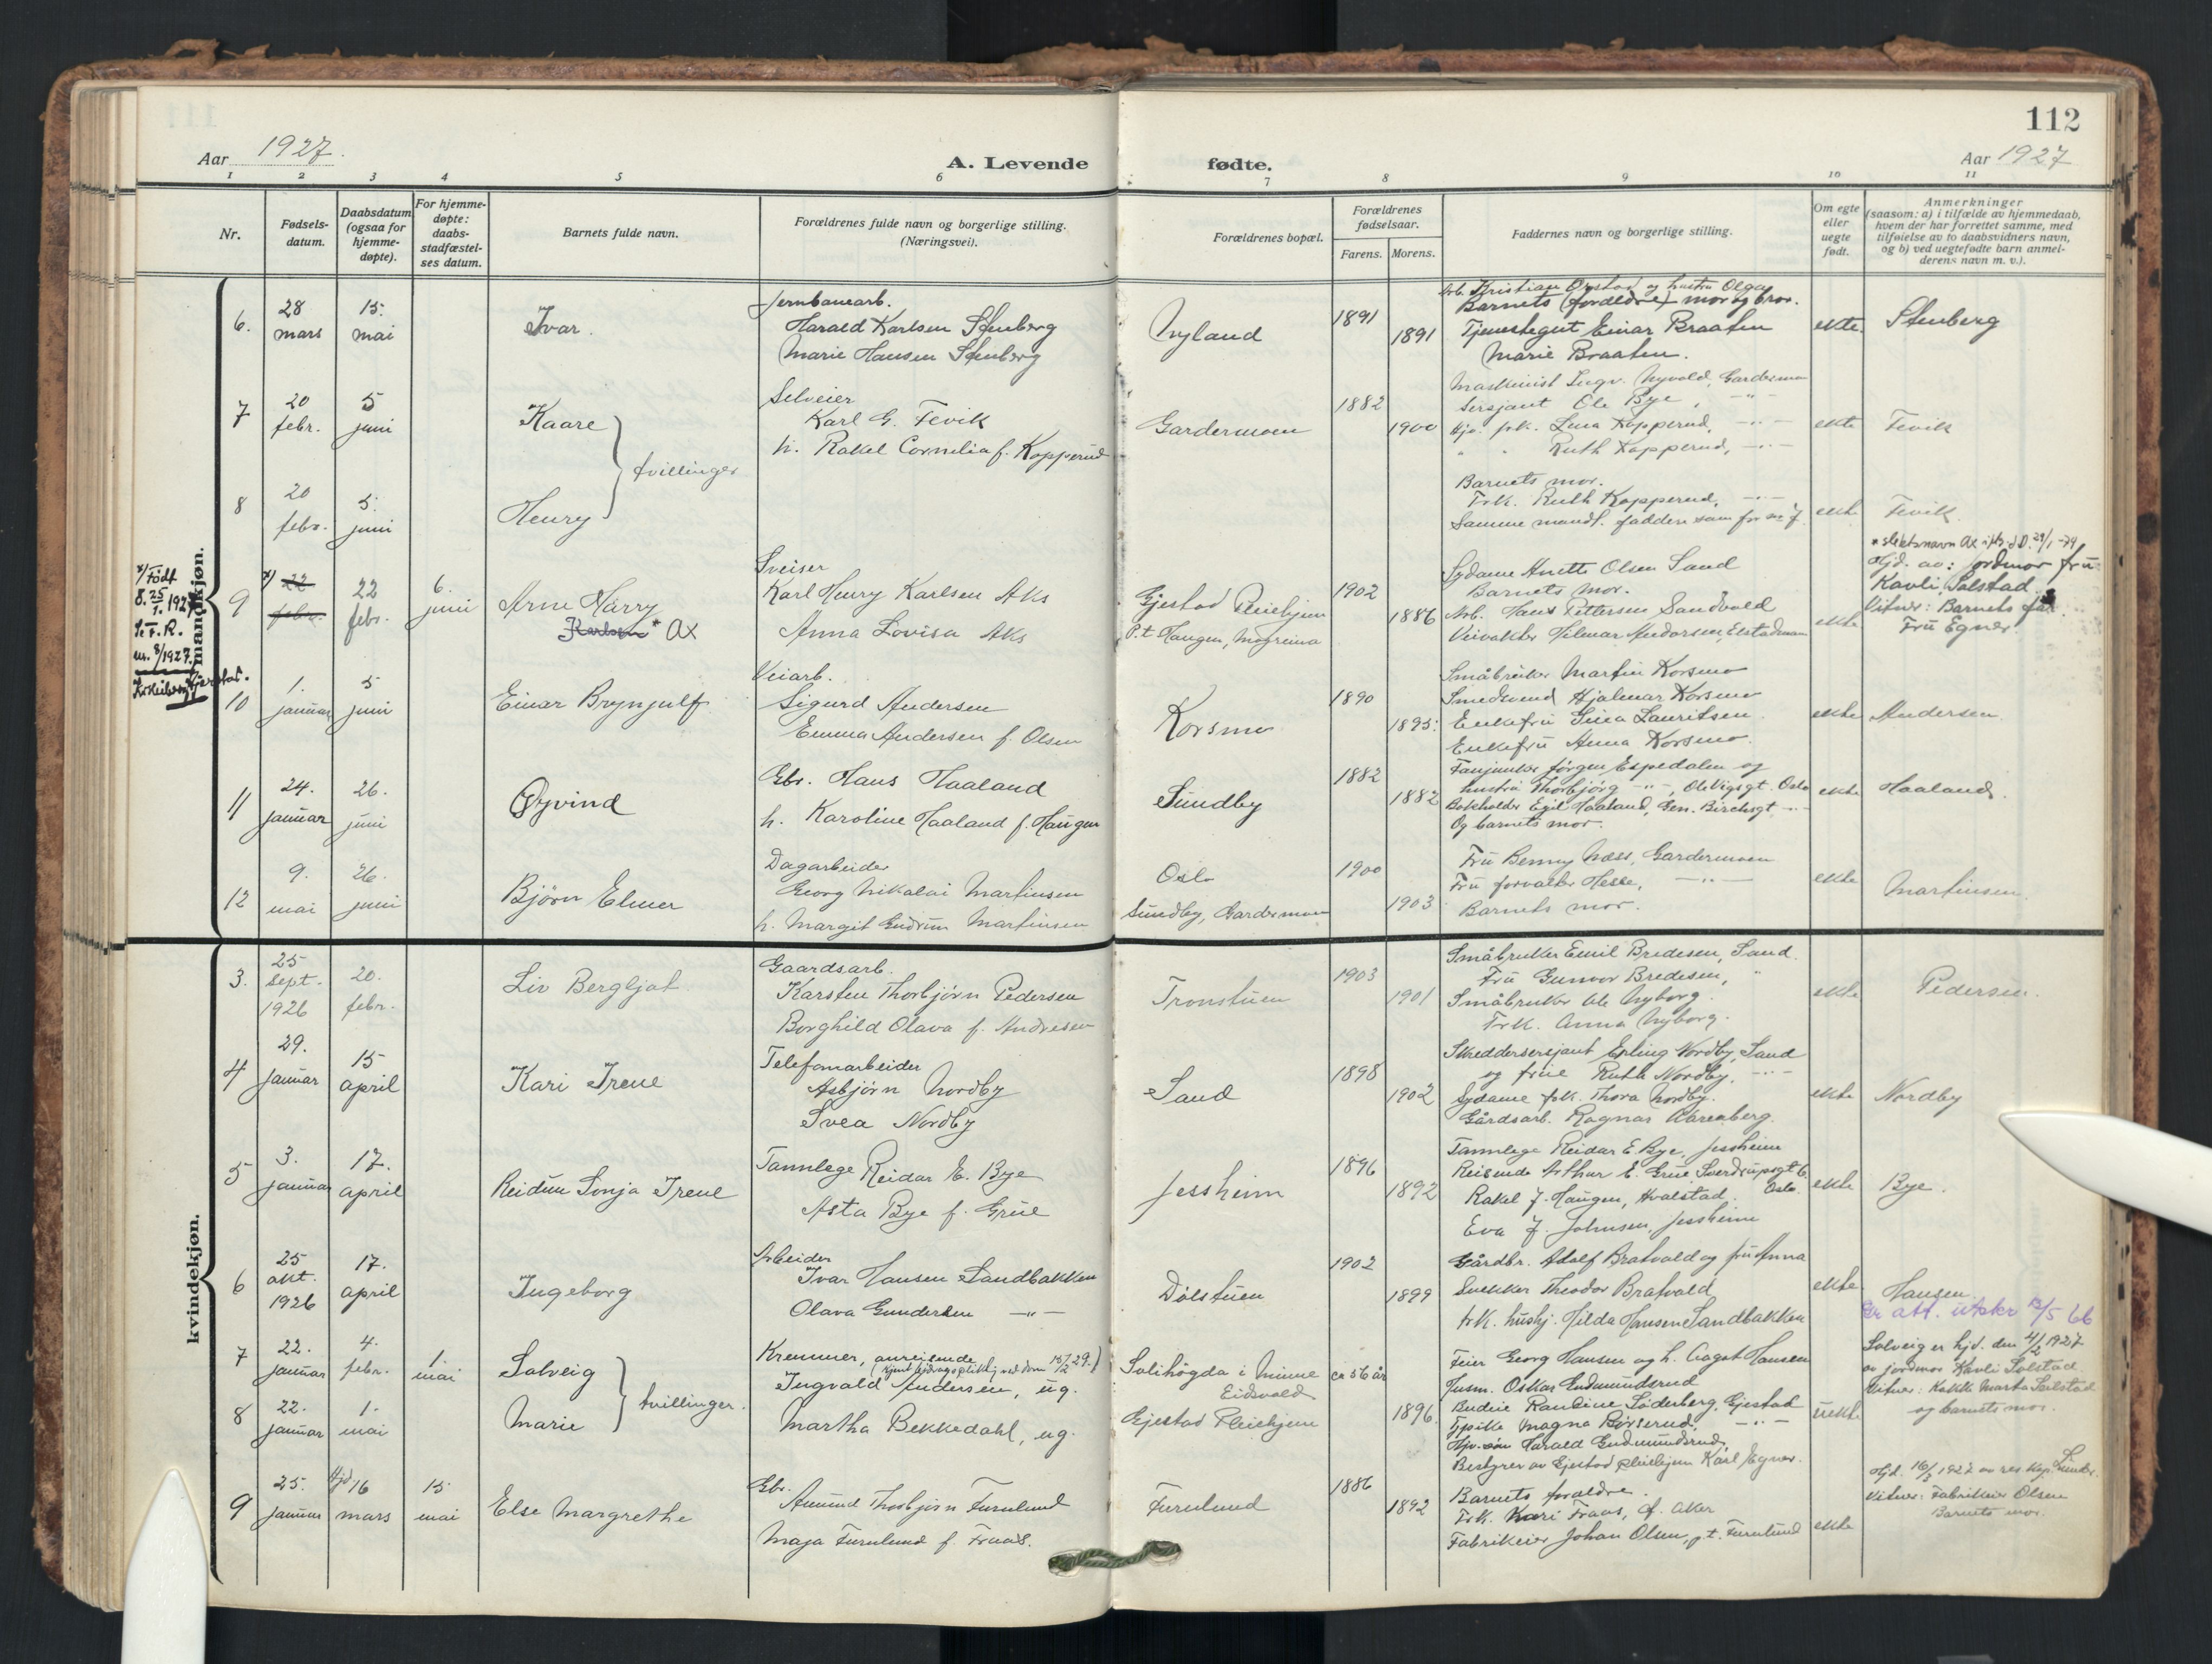 112
Aar 1927.
A. Levende
fødte.
Aar 1927
1 2 3 4 5 6 7 8 9 10 11
Nr.
Fødsels-
datum.
Daabsdatum
(ogsaa for
hjemme-
døpte).
For hjemme-
døpte:
daabs-
stadfæstel-
ses datum.
Barnets fulde navn.
Forældrenes fulde navn og borgerlige stilling.
(Næringsvei).
Forældrenes bopæl.
Forældrenes
fødselsaar.
Farens. Morens.
Faddernes navn og borgerlige stilling.
Om egte
eller
uegte
født.
Anmerkninger
(saasom: a) i tilfælde av hjemmedaab,
hvem der har forrettet samme, med
tilføielse av to daabsvidners navn,
og b) ved uegtefødte barn anmel-
derens navn m. v.).
mandkjøn.
6.
28
mars
15.
mai
Ivar.
Jernbanearb.
Harald Karlsen Stenberg
Marie Hansen Stenberg
Nyland
1891
1891
Arb. Kristian Ørstad og hustru Olga
Barnets (foreldre) mor og bror.
Tjenestegut Einar Braaten
Marie Braaten.
ekte
Stenberg
7
20
febr.
5
juni
Kaare
tvillinger
Selveier
Karl G. Tevik
h. Rakel Cornelia f. Kopperud
Gardermoen
1882
1900
Maskinist Ingv. Nyvold, Gardermo
Sersjant Ole Bye, -"-
Hjv. frk. Lina Kopperud, -"-
" " Ruth Kopperud, -"-
ekte
Tevik
8
20
febr.
5.
juni
Henry
Barnets mor.
Frk. Ruth Kopperud, -"-
Samme mandl. faddere som for nr 7
ekte
Tevik
x/ Født
d. 25/1. 1927
Se F. R.
nr. 8/1927
9
x) 22
febr.
22
febr.
6.
juni
Arne Harry
Karlsen * Ax
Sveiser
Karl Henry Karlsen Aks
Anna Lovisa Aks
Gjestad Pleiehjem
P.t Haugen, Mogreina
1902
1886
Sydame Anette Olsen Sand
Barnets mor.
Arb. Hans Pettersen Sandvold
Veivakter Hilmar Andersen, Elstadmoen
ekte
* slektsnavn Ax
Hjd. av: jordmor fru
Kavli Solstad
Vitner: Barnets far
Fru Egner.
10
1.
januar
5
juni
Einar Brynjulf
Veiarb.
Sigurd Andersen
Emma Andersen f. Olsen
Korsmo
1890
1895.
Småbruker Martin Korsmo
Smedsvend Hjalmar Korsmo
Enkefru Gina Lauritsen
Enkefru Anna Korsmo.
ekte
Andersen
11
24.
januar
26.
juni
Øyvind
Gbr. Hans Haaland
h. Karoline Haaland f. Haugen
Sundby
1882
1882
Fanjunker Jørgen Espedalen og
hustru Thorbjørg -"-, Ole Vigsgt. Oslo
Bokholder Egil Haaland, Gen. Birchsgt -"-
Og barnets mor.
ekte
Haaland.
12
9.
mai
26.
juni
Bjørn Elmer
Dagarbeider
Georg Nikolai Martinsen
h. Margit Gudrun Martinsen
Oslo
Sundby, Gardermoen
1900
1903
Fru Benny Næss, Gardermoen
Fru forvalter Hesle, -"-
Barnets mor.
ekte
Martinsen.
kvindekjøn.
3.
25
Sept.
1926
20.
febr.
Liv Bergljot
Gaardsarb.
Karsten Thorbjørn Pedersen
Borghild Olava f. Andresen
Tronstuen
1903
1901
Småbruker Emil Bredesen, Sand.
Fru Gunvor Bredesen, "
Småbruker Ole Nyborg.
Frk. Anna Nyborg.
ekte
Pedersen.
4
29.
januar
15
april
Kari Irene
Telefonarbeider
Asbjørn Nordby
Svea Nordby
Sand
1898
1902
Skreddersersjant Erling Nordby, Sand
og frue Ruth Nordby. -"-
Sydame frk. Thora Nordby.
Gårdsarb. Ragnar Aarenberg.
ekte
Nordby
5
3.
januar
17.
april
Reidun Sonja Irene
Tannlege Reidar E. Bye
Asta Bye f. Grüe
Jessheim
1896
1892
Tannlege Reidar E. Bye, Jessheim
Reisende Arthur E. Grüe, Sverdrupsgt 6
Oslo.
Rakel J. Haugen, Hvalstad.
Eva J. Johnsen, Jessheim
ekte
Bye.
6
25
okt.
1926
17.
april
Ingeborg
Arbeider
Ivar Hansen Sandbakken
Olava Gundersen -"-
Dølstuen
1902
1899
Gårdbr. Adolf Bratvold og fru Anna
Snekker Theodor Bratvold
frk. hushj. Hilda Hansen Sandbakken
ekte
Hansen
att. utskr 13/5 66
7
22.
januar
4.
febr.
1.
mai
Solveig
tvillinger.
Kremmer, omreisende
(kjent bidragspliktig ved dom 18/12 29.)
Ingvald Andersen, ug.
Solihøgda i Minne
Eidsvold
ca 56 år
Feier Georg Hansen og h. Aagot Hansen
Jusm. Oskar Gudmundsrud
Solveig er hjd. den 4/2 1927
av jordmor Kavli Solstad
Vitner: Kokke Marta Solstad
og barnets mor.
8
22.
januar
1.
mai
Marie
Martha Bekkedahl, ug.
Gjestad Pleiehjem
1896.
Budeie Pauline Söderberg, Gjestad
Tjpike Magna Børserud, -"-
Hjv. søn Harald Gudmundsrud,
Bestyrer av Gjestad Pleiehjem Karl Egner.
uekte
9
25.
januar
Hjd. 16
mars
15
mai
Else Margrethe
Gbr.
Amund Thorbjørn Furulund
Maja Furulund f. Fraas.
Furulund
1886
1892
Barnets foreldre.
Frk. Kari Fraas, Ø. Aker
Fabrikeier Johan Olsen, p.t. Furulund
ekte
Hjd. 16/3 1927 av res. kap. Lunde.
Vitner: Fabrikeier Olsen
Barnets mor.